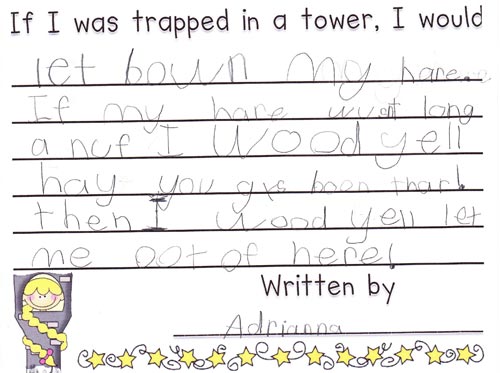 If I was trapped in a tower, I would
let bown my hare.
If my hare wusnt long
a nuf I Wood yell
hay you gxs boon thar!
then I wood yell let
me oot of here!
Written by
Adrianna